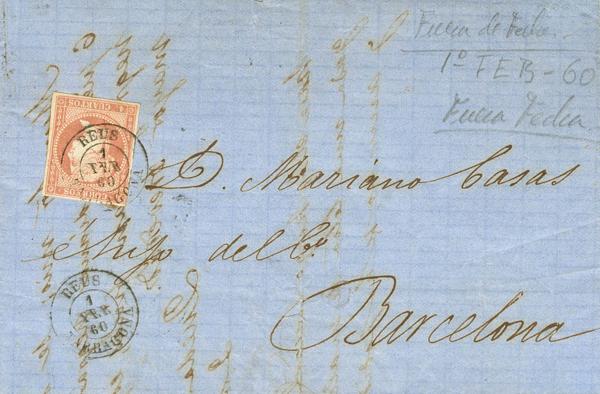 Fuera de Fecha.
1º FEB-60
Fuera Fecha
4 CUARTOS
REUS
1
FEB
60
D. Mariano Casas
hijo del Cº
REUS
1
FEB
60
TARRAGONA
Barcelona